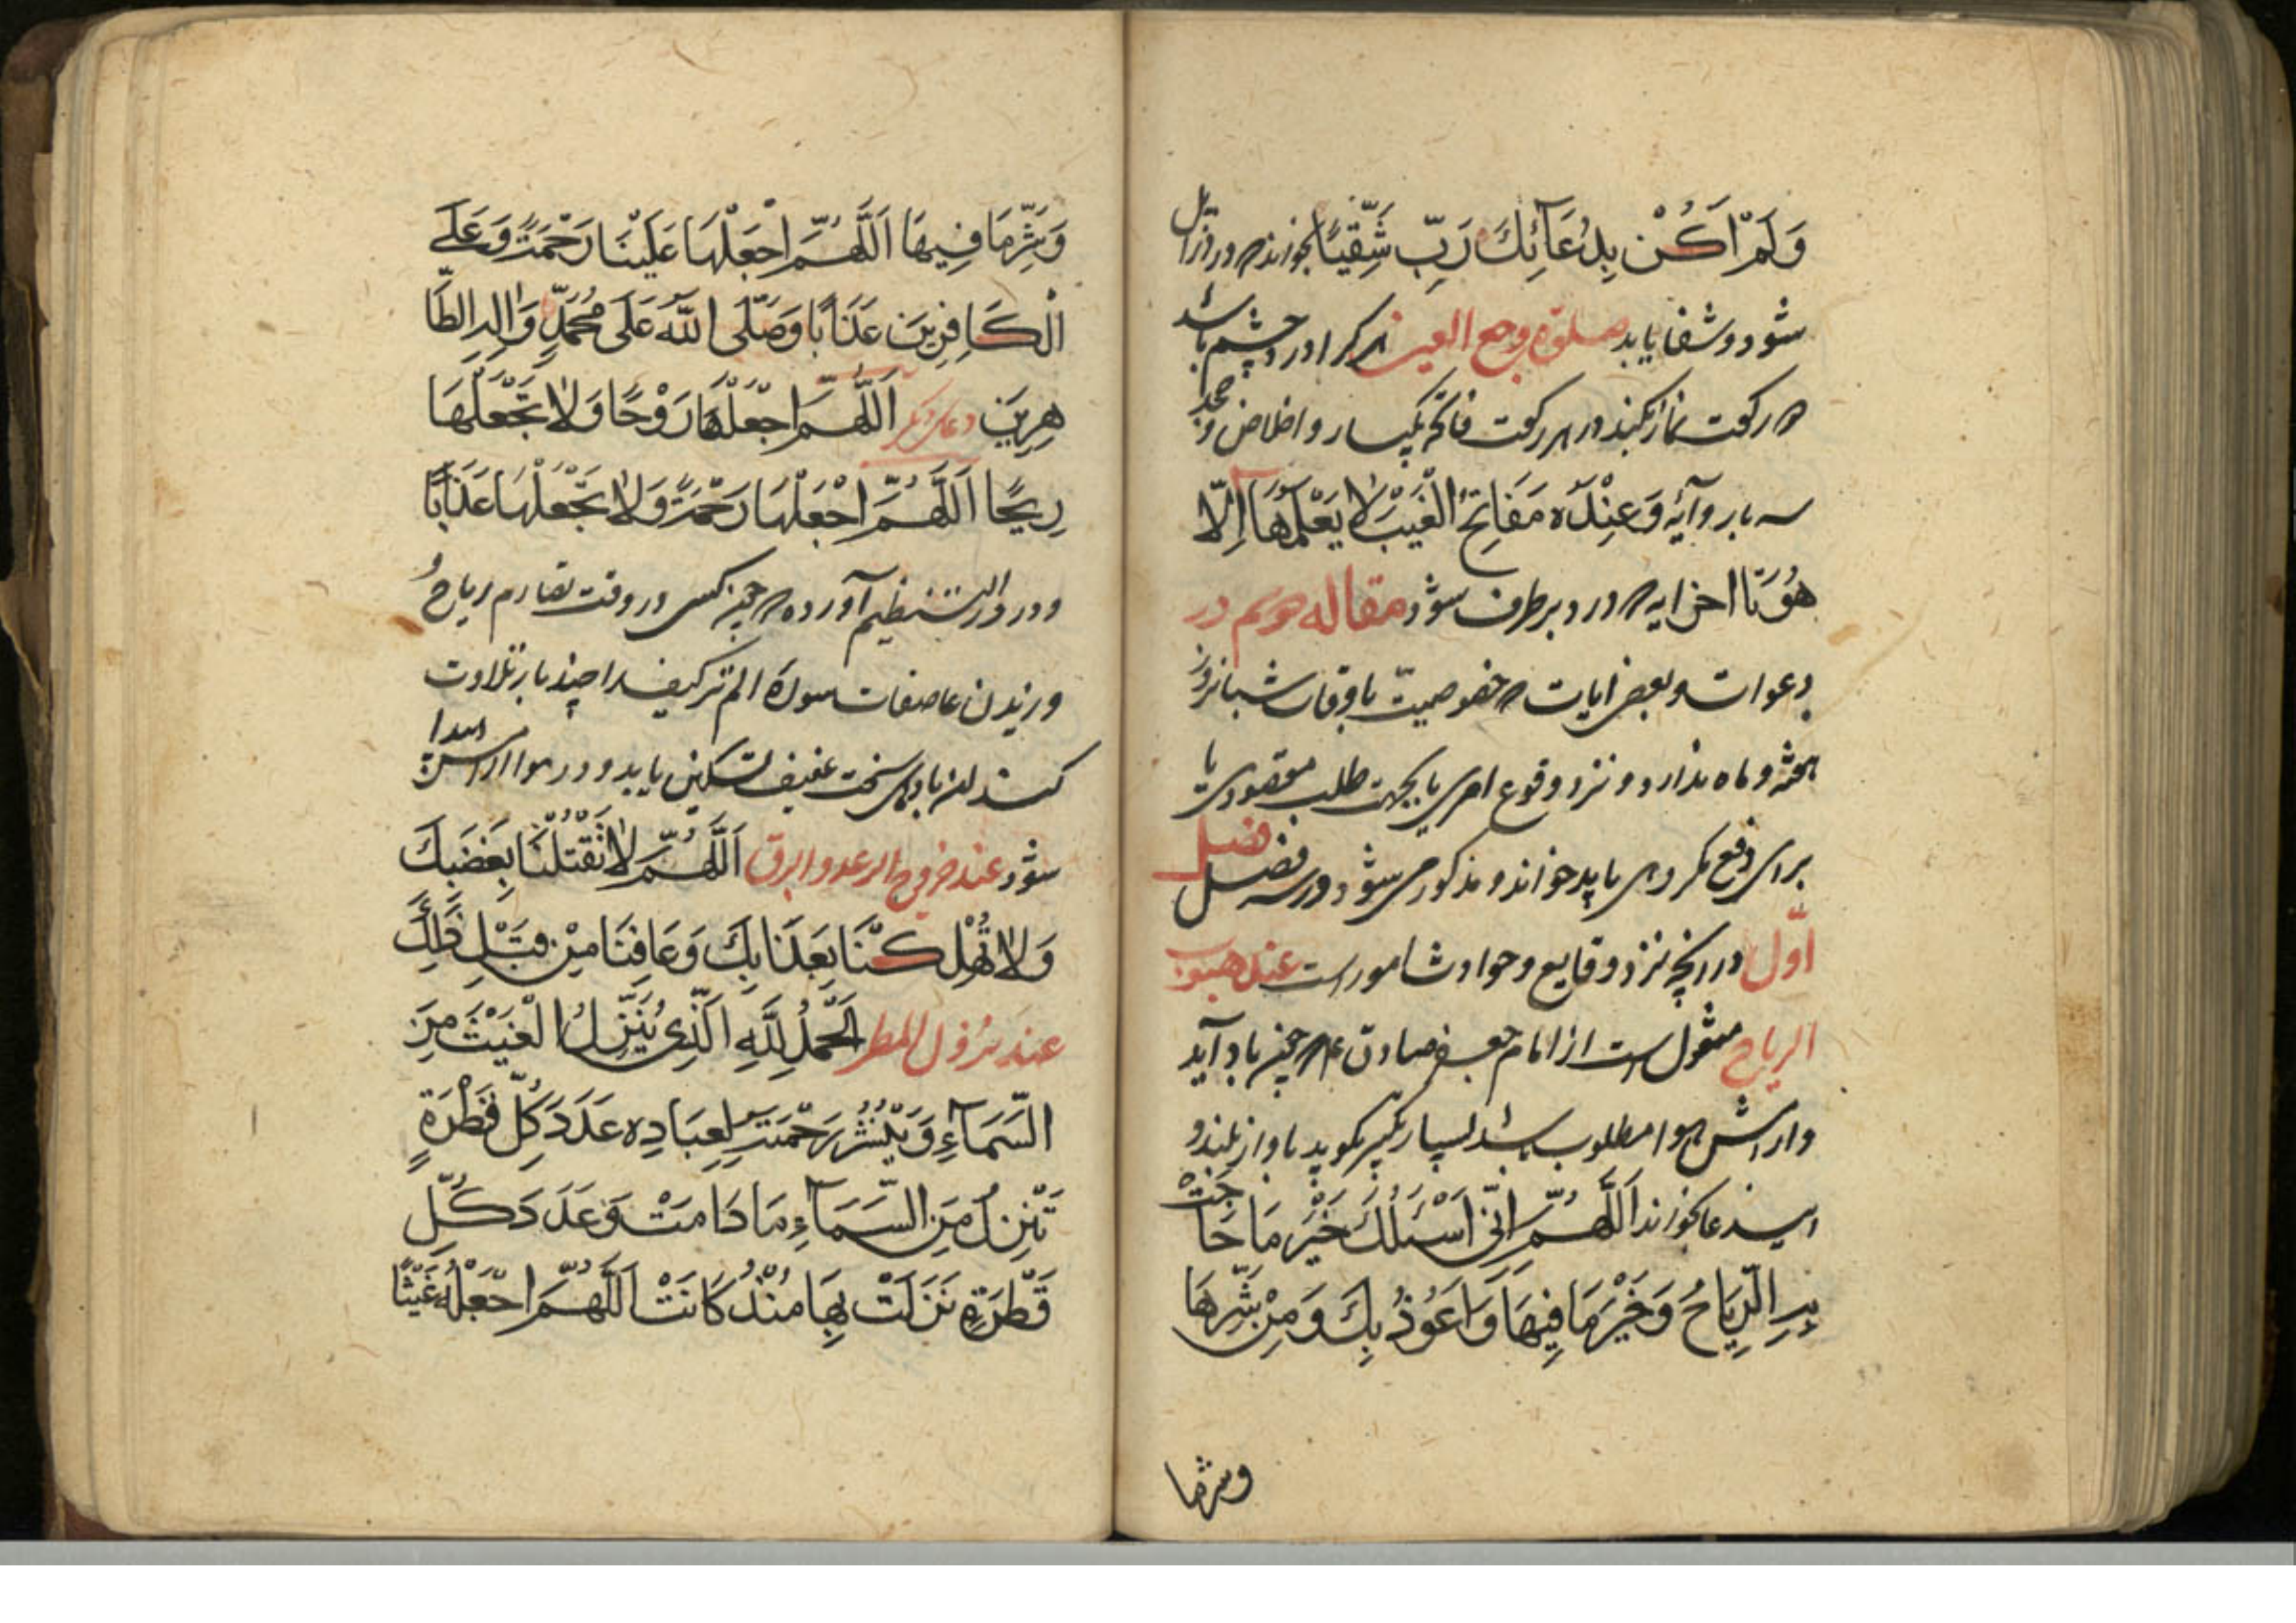 وَلَمْ اَكُنْ بِدُعَآئِكَ رَبِّ شَقِيًّا بخواند که درد زائل
شود و شفا یابد صلوة وجع العین هر کرا درد چشم باشد
دو رکعت نماز بکند در هر رکعت فاتحه یکبار و اخلاص و جحد
سه بار و آیه وَعِنْدَهُ مَفَاتِحُ الْغَيْبِ لَا يَعْلَمُهَا اِلَّا
هُوَ تا اخر ایه که درد برطرف شود مقاله سوم در
دعوات و بعضی ایات که خصوصیت باوقات شبانروز
هفته و ماه ندارد و نزد وقوع امری یا بجهت طلب مقصودی یا
برای دفع مکروهی باید خواند و مذکور می شود در سه فصل فصل
اوّل در انچه نزد وقایع و حوادث امور است عند هبوب
الریاح منقول است از امام جعفر صادق ع که چون باد آید
و ارامش هوا مطلوب باشد بسیار تکبیر بگوید باواز بلند و
این دعا بخواند اَللّٰهُمَّ اِنِّىْ اَسْئَلُكَ خَيْرَ مَا حَاجَتْ
بِهِ الرِّيَاحُ وَخَيْرَ مَا فِيهَا وَاَعُوْذُ بِكَ وَمِنْ شَرِّهَا
وشرما
وَشَرِّ مَا فِيهَا اَللّٰهُمَّ اجْعَلْهَا عَلَيْنَا رَحْمَةً وَعَلَى
الْكَافِرِيْنَ عَذَابًا وَصَلَّى اللّٰهُ عَلَى مُحَمَّدٍ وَاٰلِهِ الطَّا
هِرِيْنَ دعای دیگر اَللّٰهُمَّ اجْعَلْهَا رَوْحًا وَلَا تَجْعَلْهَا
رِيْحًا اَللّٰهُمَّ اجْعَلْهَا رَحْمَةً وَلَا تَجْعَلْهَا عَذَابًا
و در درر النظیم آورده که چون کسی در وقت تصارم ریاح و
وزیدن عاصفات سورهٔ الم تر کیف را چند بار تلاوت
کند ان بادهای سخت عنیف تسکین یابد و در هوا ارامش پیدا
شود عند خروج الرعد والبرق اَللّٰهُمَّ لَا تَقْتُلْنَا بِغَضَبِكَ
وَلَا تُهْلِكْنَا بِعَذَابِكَ وَعَافِنَا مِنْ قَبْلِ ذٰلِكَ
عند نزول المطر اَلْحَمْدُ لِلّٰهِ الَّذِى يُنَزِّلُ الْغَيْثَ مِنَ
السَّمَآءِ وَيَنْشُرُ رَحْمَتَهُ لِعِبَادِهِ عَدَدَ كُلِّ قَطْرَةٍ
تَنْزِلُ مِنَ السَّمَآءِ مَا دَامَتْ وَعَدَدَ كُلِّ
قَطْرَةٍ نَزَلَتْ بِهَا مُنْذُ كَانَتْ اَللّٰهُمَّ اجْعَلْهُ غَيْثًا